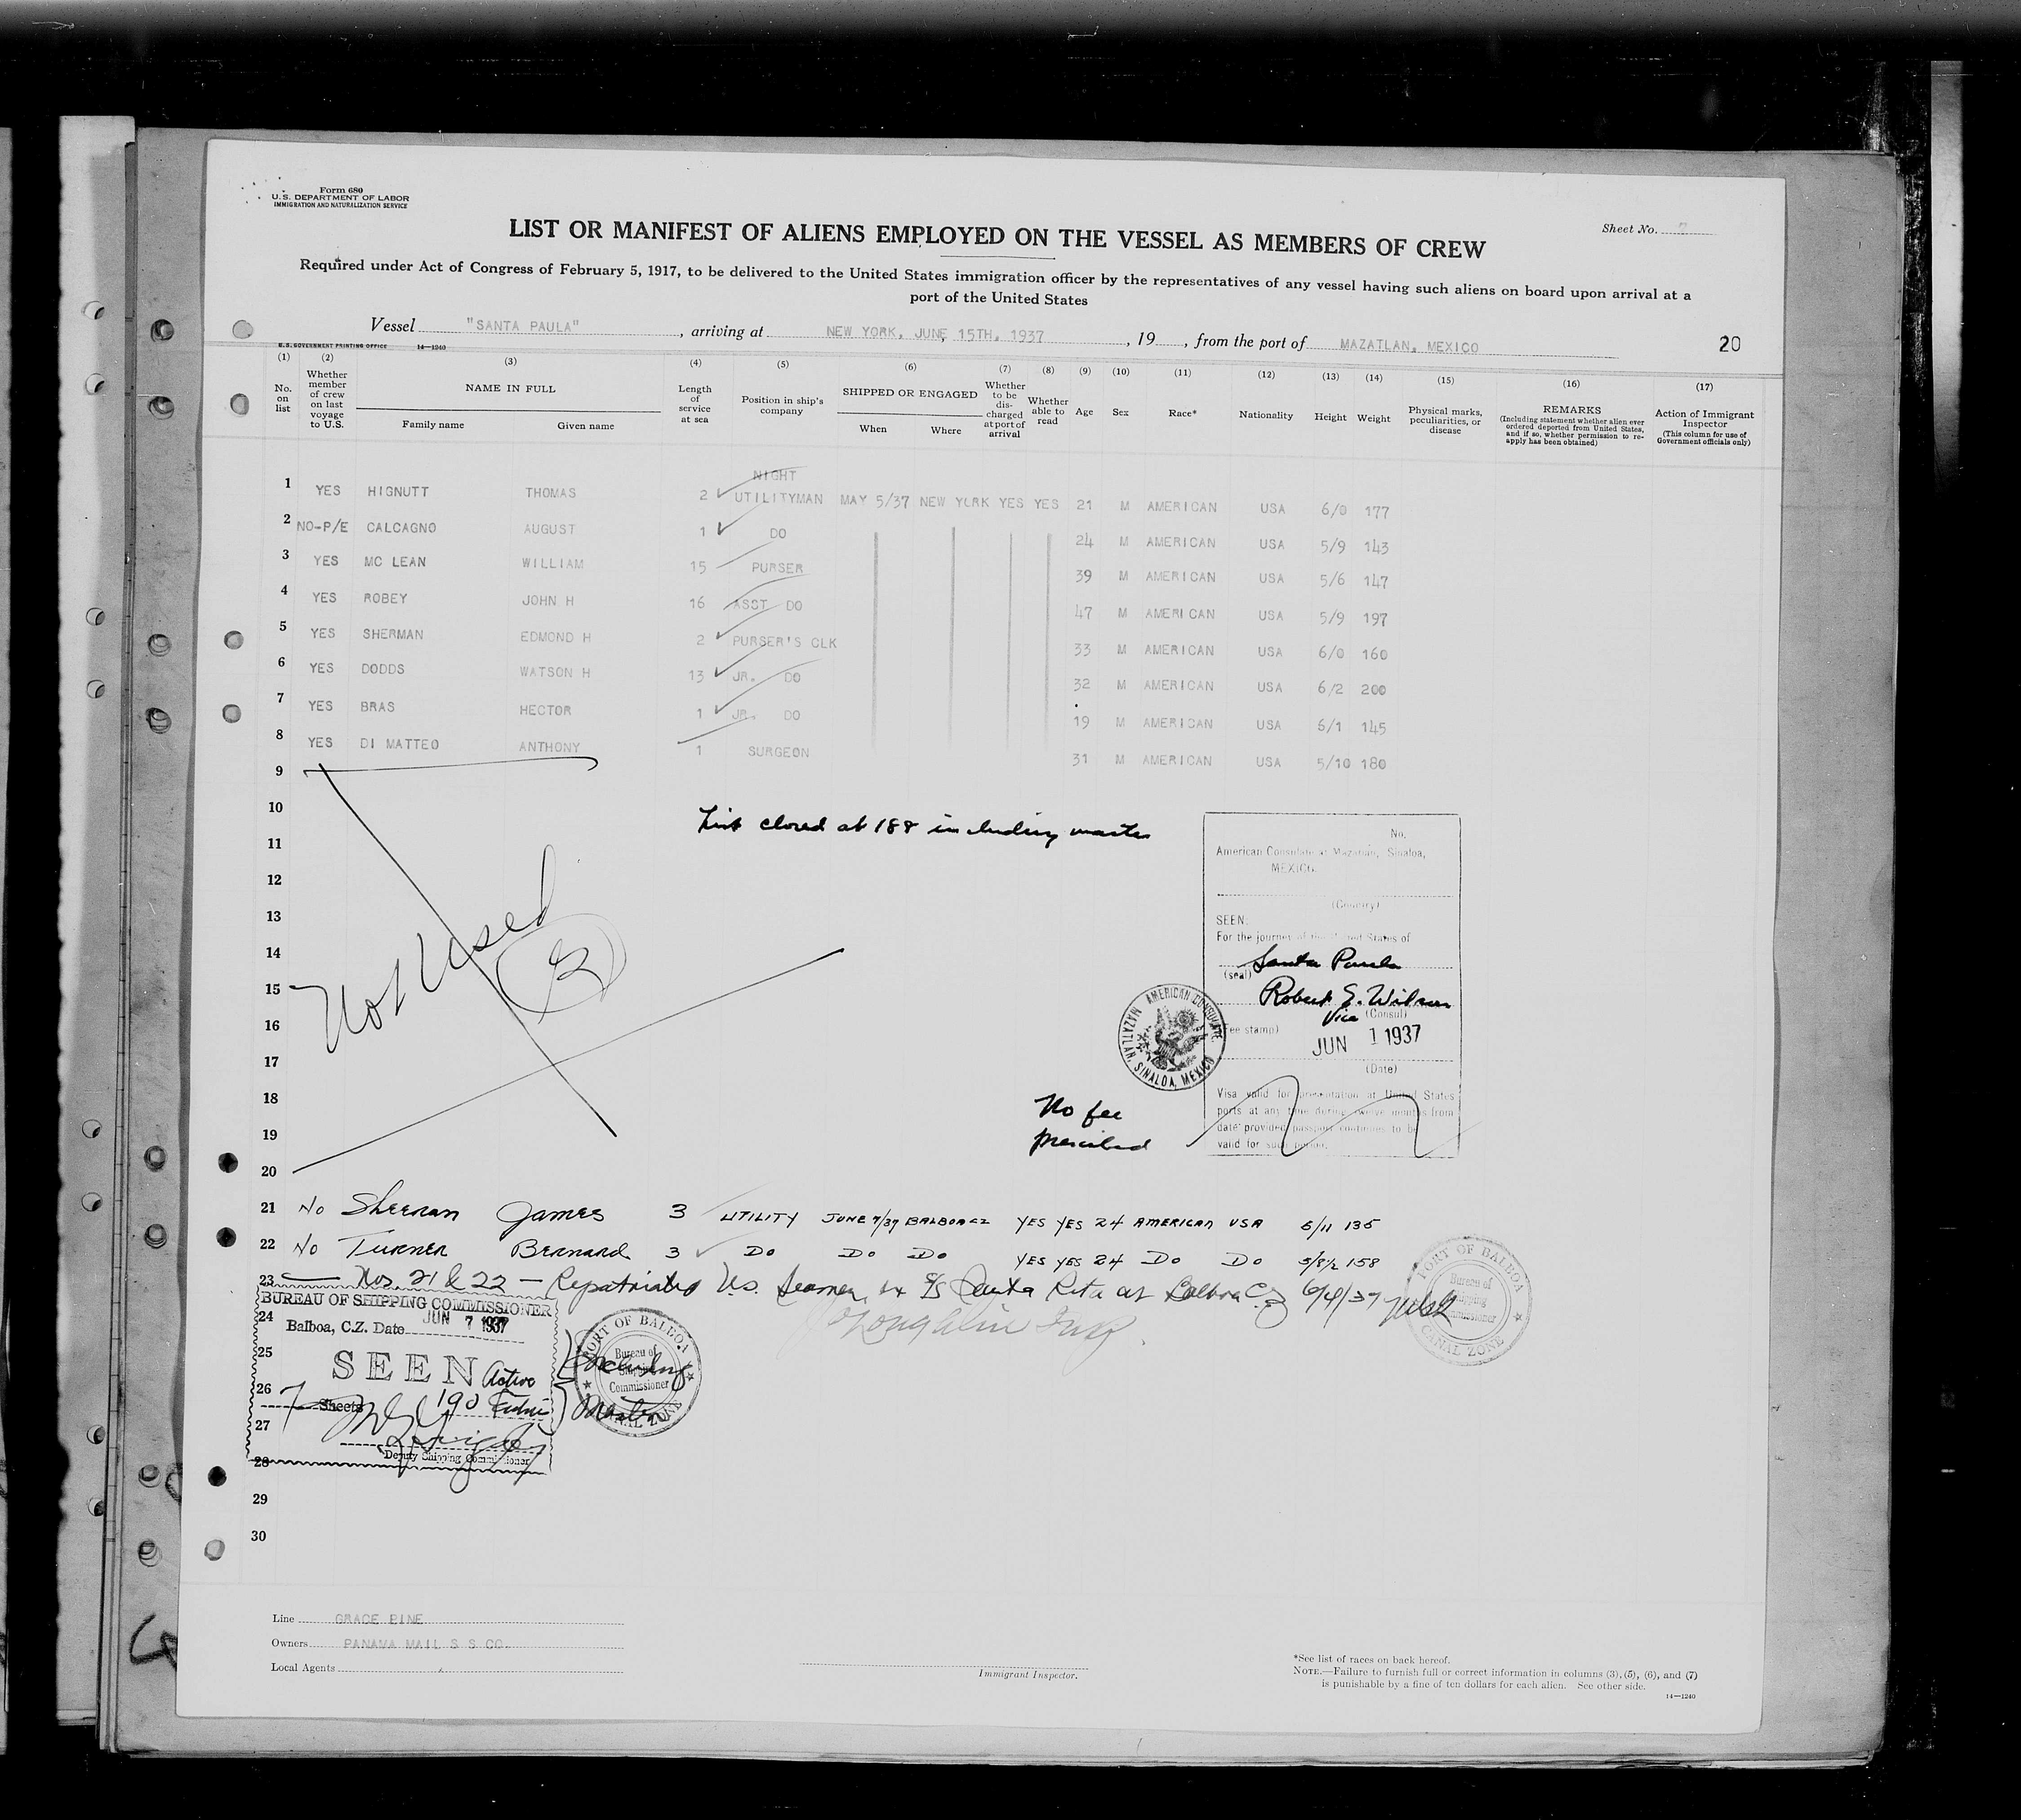 Form 680
U. S. DEPARTMENT OF LABOR
IMMIGRATION AND NATURALIZATION SERVICE
Sheet No.
LIST OR MANIFEST OF ALIENS EMPLOYED ON THE VESSEL AS MEMBERS OF CREW
Required under Act of Congress of February 5, 1917, to be delivered to the United States immigration officer by the representatives of any vessel having such aliens on board upon arrival at a
port of the United States
Vessel "SANTA PAULA", arriving at NEW YORK, JUNE 15TH, 1937, 19, from the port of MAZATLAN, MEXICO 20
U. S. GOVERNMENT PRINTING OFFICE 14—1240
(1) (2) (3) (4) (5) (6) (7) (8) (9) (10) (11) (12) (13) (14) (15) (16) (17)
No. on list
Whether member of crew on last voyage to U.S.
NAME IN FULL
Family name Given name
Length of service at sea
Position in ship's company
SHIPPED OR ENGAGED
When Where
Whether to be discharged at port of arrival
Whether able to read
Age Sex Race* Nationality Height Weight
Physical marks, peculiarities, or disease
REMARKS
(Including statement whether alien ever ordered deported from United States, and if so, whether permission to reapply has been obtained)
Action of Immigrant Inspector
(This column for use of Government officials only)
NIGHT
1 YES HIGNUTT THOMAS 2 UTILITYMAN MAY 5/37 NEW YORK YES YES 21 M AMERICAN USA 6/0 177
2 NO-P/E CALCAGNO AUGUST 1 DO 24 M AMERICAN USA 5/9 143
3 YES MC LEAN WILLIAM 15 PURSER 39 M AMERICAN USA 5/6 147
4 YES ROBEY JOHN H 16 ASST DO 47 M AMERICAN USA 5/9 197
5 YES SHERMAN EDMOND H 2 PURSER'S CLK 33 M AMERICAN USA 6/0 160
6 YES DODDS WATSON H 13 JR. DO 32 M AMERICAN USA 6/2 200
7 YES BRAS HECTOR 1 JR. DO 19 M AMERICAN USA 6/1 145
8 YES DI MATTEO ANTHONY 1 SURGEON 31 M AMERICAN USA 5/10 180
9
10
List closed at 188 including master
11
12
13
14
15
16
17
18
19
20
Not Used
No.
American Consulate at Mazatlan, Sinaloa,
MEXICO.
(Country)
SEEN:
For the journey of the United States of
Santa Paula
(seal)
Robert E. Wilson
Vice (Consul)
(Fee stamp)
JUN 1 1937
(Date)
Visa valid for presentation at United States
ports at any time during twelve months from
date provided passport continues to be
valid for such period.
AMERICAN CONSULATE
MAZATLAN, SINALOA, MEXICO
No fee
prescribed
21 No Sheeran James 3 UTILITY JUNE 7/37 BALBOA CZ YES YES 24 AMERICAN USA 5/11 135
22 No Turner Bernard 3 Do Do Do YES YES 24 Do Do 5/8½ 158
23 Nos. 21 & 22 — Repatriated U.S. Seamen, ex S/S Santa Rita at Balboa CZ 6/4/37
24
25
26
27
28
29
30
BUREAU OF SHIPPING COMMISSIONER
Balboa, C.Z. Date JUN 7 1937
SEEN Active
7 Sheets 190
Deputy Shipping Commissioner
Including
Master
PORT OF BALBOA
Bureau of
Shipping
Commissioner
CANAL ZONE
PORT OF BALBOA
Bureau of
Shipping
Commissioner
CANAL ZONE
Line GRACE BINE
Owners PANAMA MAIL S S CO.
Local Agents
Immigrant Inspector.
*See list of races on back hereof.
NOTE.—Failure to furnish full or correct information in columns (3), (5), (6), and (7)
is punishable by a fine of ten dollars for each alien. See other side.
14—1240